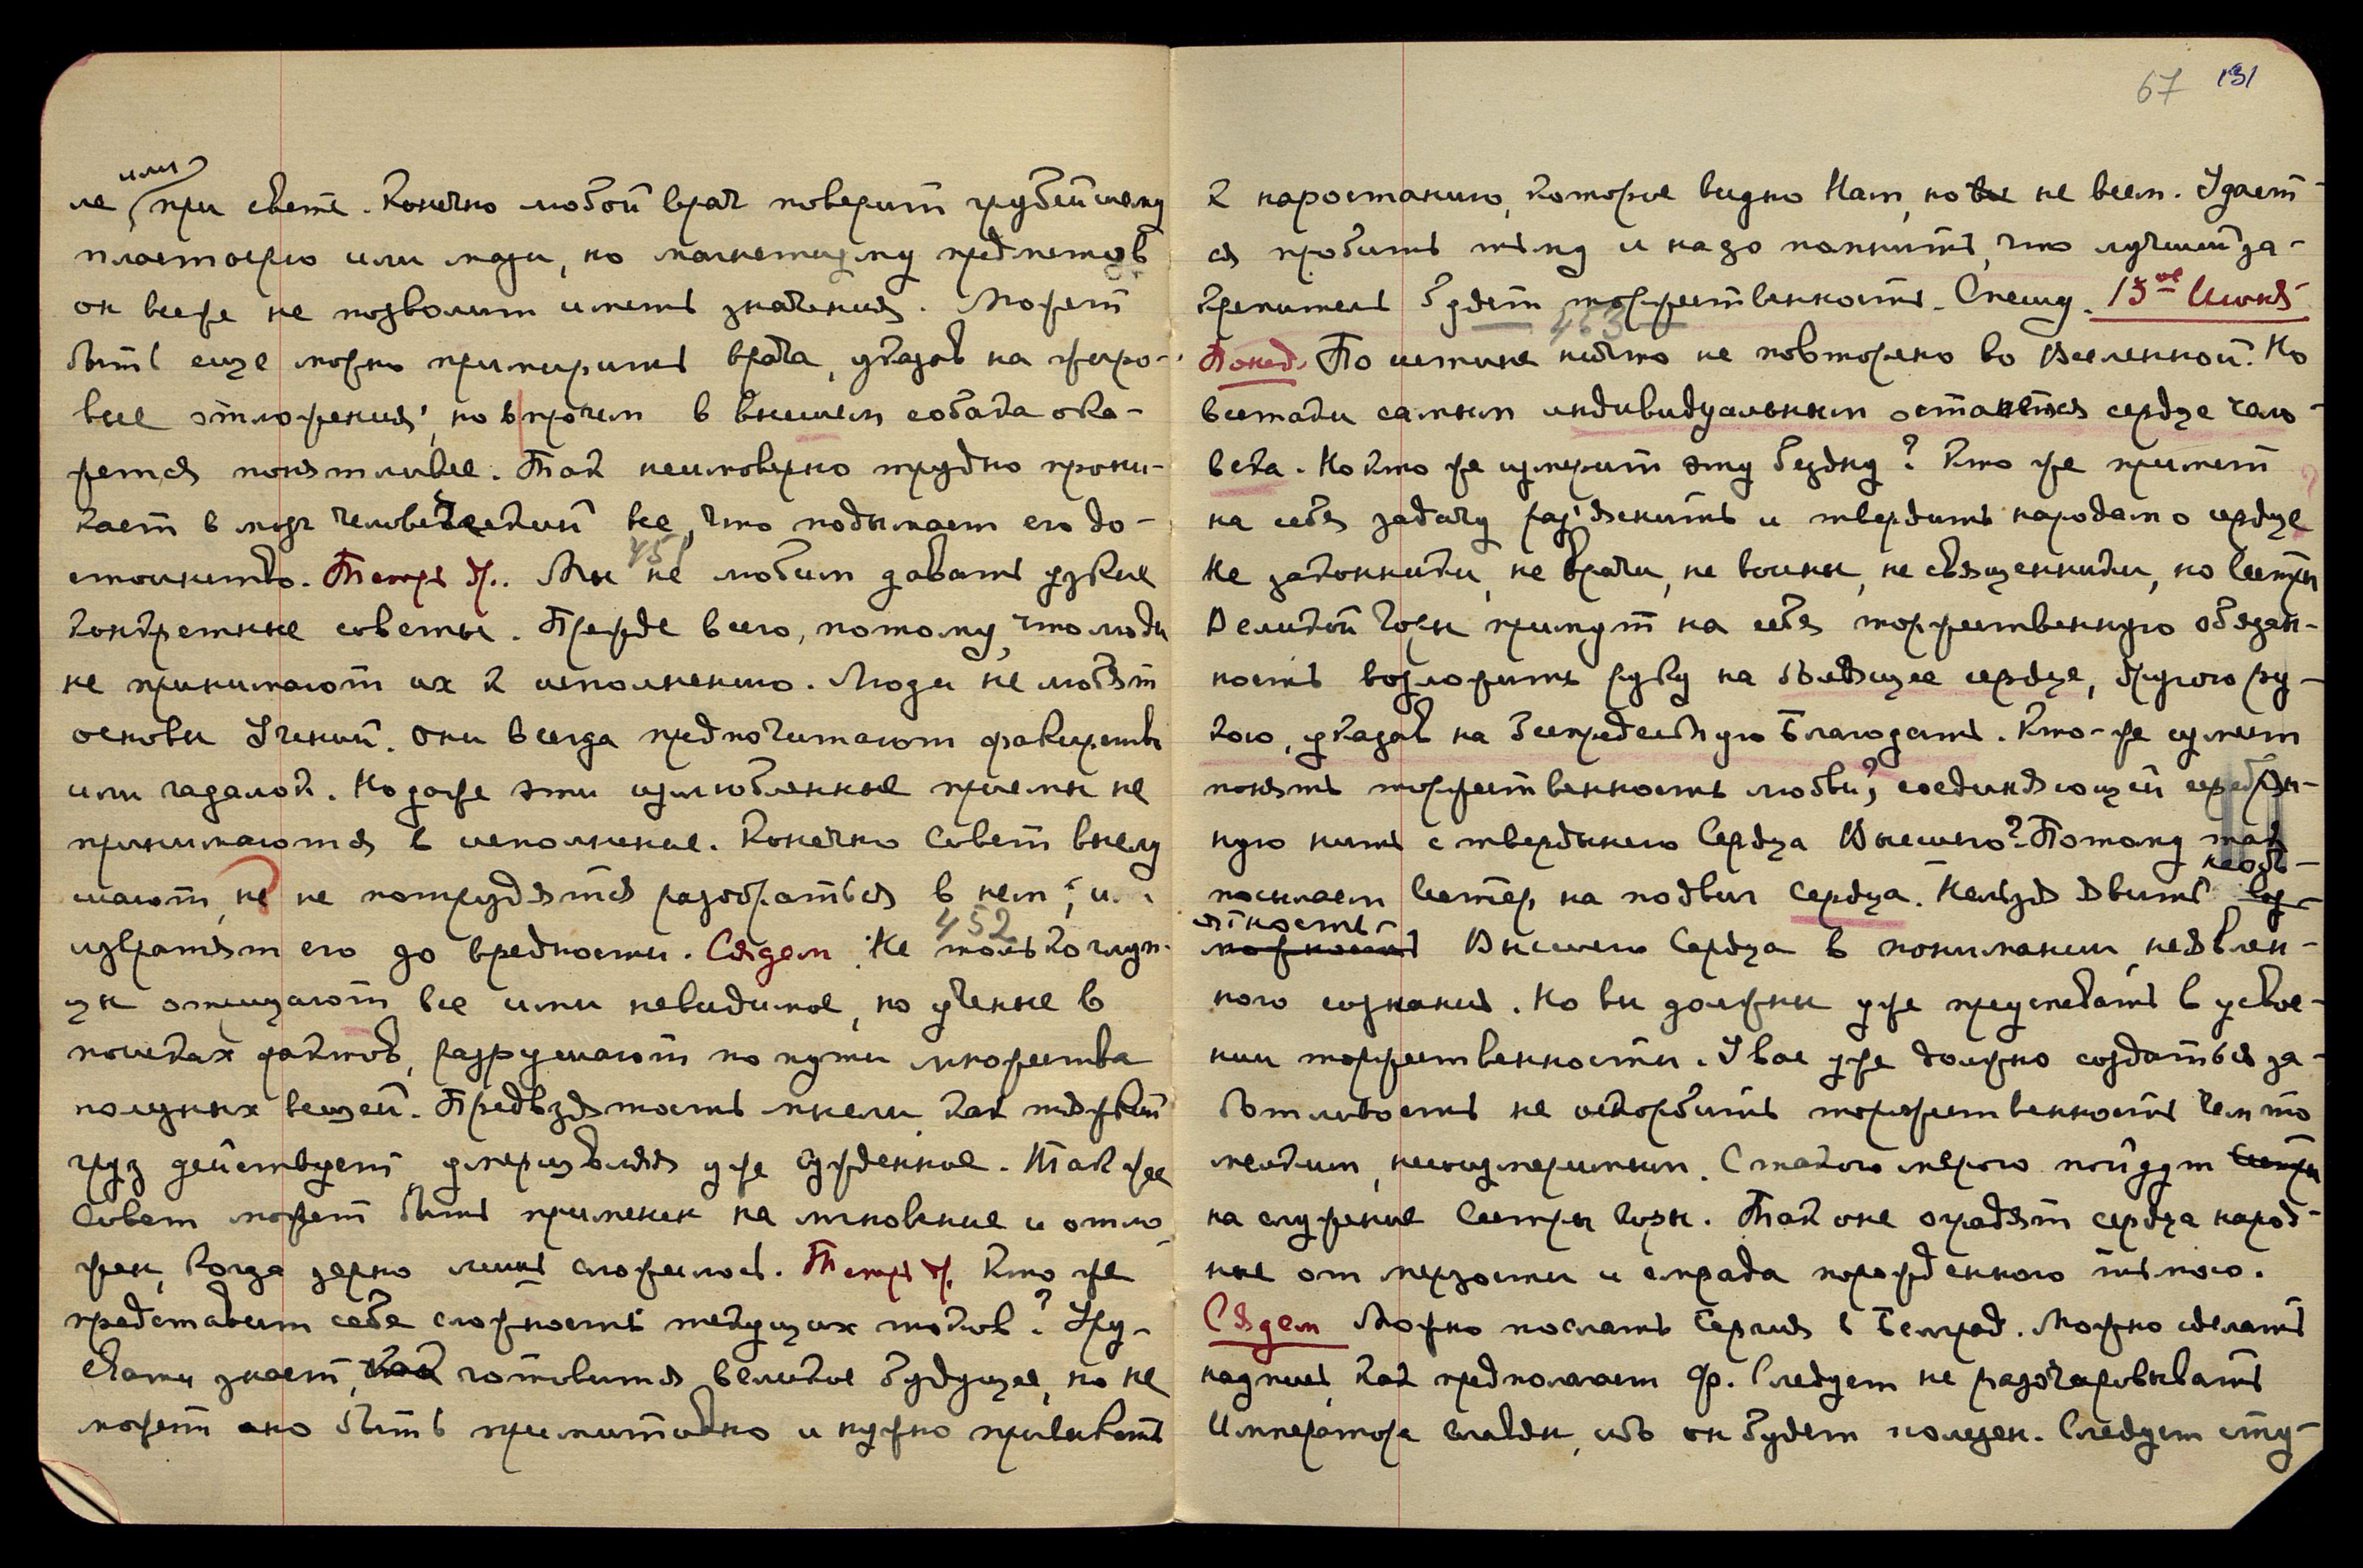 или
ле, при свете. Конечно любой врач поверит грубейшему
пластырю или мази, но магнетизму предметов
он все же не позволит иметь значения. Может
быть еще можно примирить врача, указав на жиро-
вые отложения, но впрочем в внешнем собака ока-
жется понятливее. Так неимоверно трудно прони-
кает в мозг человеческий все, что подымает его до-
451
стоинство. Теперь др. Мы не любим давать узкие
конкретные советы. Прежде всего, потому, что люди
не принимают их к исполнению. Люди не любят
основы Учений. Они всегда предпочитают факирство
или гадалок. Но даже эти излюбленные приемы не
принимаются в исполнение. Конечно Совет выслу
шают, не не потрудятся разобраться в нем, и
452
извратят его до вредности. Сядем. Не только глуп-
цы отрицают все ими невидимое, но ученые в
поисках фактов, разрушают по пути множества
полезных вещей. Предвзятость мысли, как тяжкий
груз действует, умерщвляя уже сужденное. Так же
Совет может быть применен на мгновение и отло
жен, когда зерно лишь сложилось. Теперь др. Кто же
представит себе сложность текущих токов? Уру-
свати знает, как готовится великое будущее, но не
может оно быть примитивно и нужно привыкать
67 131
к наростанию, которое видно Нам, но не всем. Удает-
ся пробить тьму и надо помнить, что лучший за-
крепитель будет торжественность. Спешу. 13ое Июня
453
Понед. По истине ничто не повторено во Вселенной. Но
всетаки самым индивидуальным останется сердце чело-
века. Но кто же измерит эту бездну? Кто же примет
на себя задачу раз'яснить и твердить народам о сердце
Не законники, не врачи, не воины, не священники, но Сестры
Великой Горы примут на себя торжественную обязан-
ность возложить руку на болящее сердце, другою ру-
кою, указав на беспредельную Благодать. Кто-же сумеет
понять торжественность любви, соединяющей серебрян-
ную нить с твердынею Сердца Высшего? Потому так
посылаем Сестер на подвиг сердца. Нельзя явить необъ-
воз-
ятность
можность Высшего Сердца в понимании неявлен-
ного сознания. Но вы должны уже преуспевать в усвое-
нии торжественности. У вас уже должно создаться за-
ботливость не оскорбить торжественность чем то
мелким, несоизмеримым. С такою мерою пойдут Сестры
на служение Сестры Горы. Так они оградят сердца народ-
ные от мерзости и смрада порожденного тьмою.
Сядем Можно послать Сергия в Белград. Можно сделать
надпись, как предполагает Ф. Следует не разочаровывать
Императора Славян, ибо он будет полезен. Следует сту-